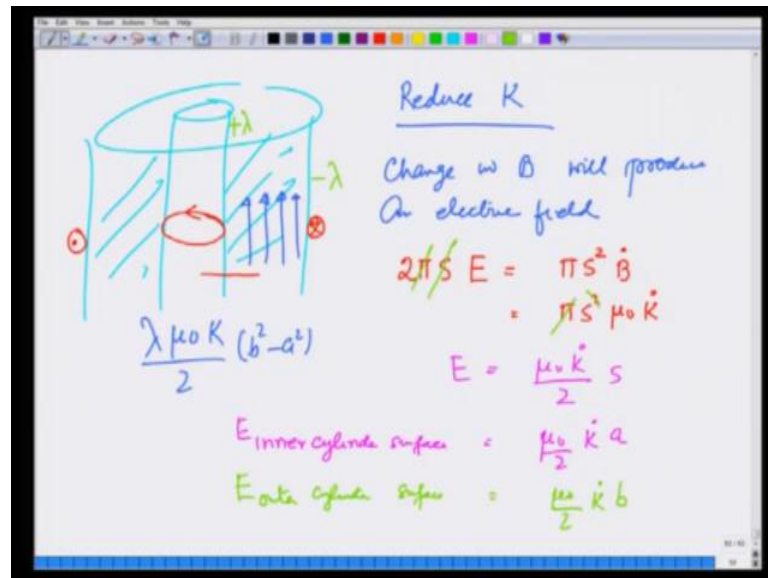 File Edit View Insert Actions Tools Help
+λ
-λ
λ μ₀ K / 2 (b² - a²)
Reduce K
Change in B will produce
An electric field
2πs E = πs² Ḃ
= πs² μ₀ K̇
E = μ₀ K̇ / 2 s
E inner cylinder surface = μ₀ / 2 K̇ a
E outer cylinder surface = μ₀ / 2 K̇ b